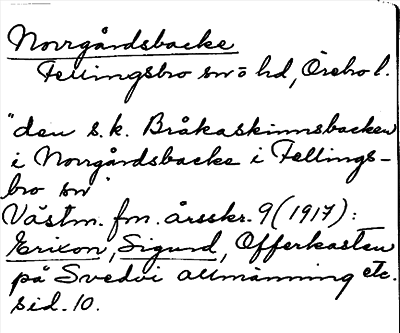 Norrgårdsbacke
Fellingsbro sn o hd, Örebro l.
"den s.k. Bråkaskinnsbacken
i Norrgårdsbacke i Fellings-
bro sn"
Västm. fm. årsskr. 9 (1917):
Erixon, Sigurd, Offerkasten
på Svedvi allmänning etc.
sid. 10.